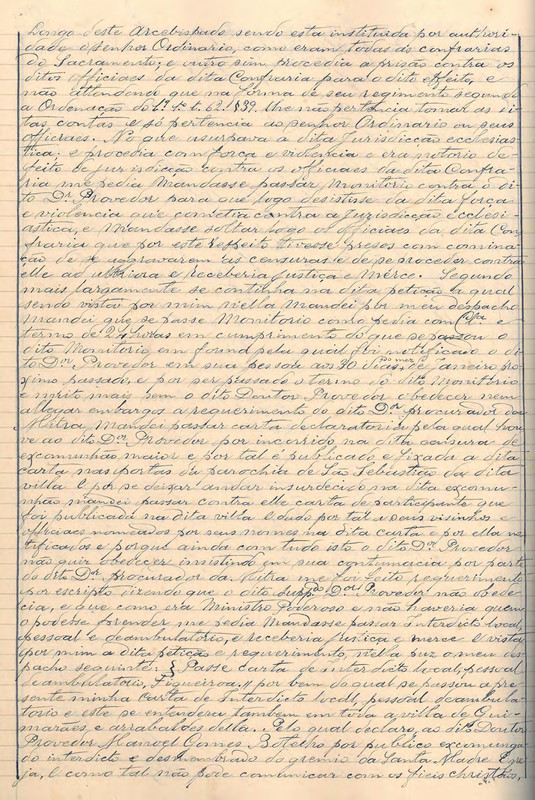 Longo deste Arcebispado sendo esta instituida por authori-
dade o Senhor Ordinario, como eram todas as confrarias
do Sacramento; e outro sim procedia a prisão contra os
ditos officiaes da dita Confraria para o dito effeito, e
não attendendo que na forma de seu regimento segundo
a Ordenação do L.º 1.º t. 62. § 39. lhe não pertencia tomar as di-
tas contas e só pertencia ao Senhor Ordinario ou seus
officiaes. No que usurpava a dita Jurisdicção ecclesias-
tica; e procedia com força e violencia e era notorio de-
feito de jurisdicção contra os officiaes da dita Confra-
ria me pedia Mandasse passar Monitorio contra o di-
to Dr. Provedor para que logo desistisse da dita força
e violencia que cometia contra a Jurisdicção ecclesi-
astica, e Mandasse soltar logo os officiaes da dita Con
fraria que por este respeito tivesse presos com comina-
ção de se aggravarem as censuras e de se proceder contra
elle ad ulteriora e receberia Justiça e Merce. Segundo
mais largamente se continha na dita petição a qual
sendo vista por mim nella Mandei por meu despacho
Mandei que se passe Monitorio como pedia com e
termo de 24 horas em cumprimento do que se passou o
dito Monitorio em forma pela qual foi notificado o di-
to Dor. Provedor em sua pessoa aos 30 dias do mes de Janeiro pro-
ximo passado, e por ser passado o termo do dito Monitorio
e muito mais sem o dito Doutor Provedor obedecer nem
allegar embargos a requerimento do dito Dor. procurador da
Mitra Mandei passar carta declaratoria pela qual hou-
ve ao dito Dor. Provedor, por incorrido na dita censura de
excomunhão maior e por tal é publicado e fixada a dita
carta nas portas da parochia de São Sebastião da dita
villa e por se deixar andar insurdecido na dita excomu-
nhão mandei passar contra elle carta de participante que
foi publicada na dita villa e dado por tal a seus visinhos e
officiaes nomeados por seus nomes na dita carta e por ella no-
tificados e porque ainda com tudo isto o dito Dor. Provedor
não quiz obedecer insistindo em sua contumacia por parte
do dito Dor. procurador da Mitra me foi feito requerimento
por escripto dizendo que o dito Dor. Provedor não obede-
cia, e que como era Ministro Poderoso e não haveria quem
o podesse prender me pedia Mandasse passar Interdicto local,
pessoal e deambulatorio, e receberia Justiça e merce e vista
por mim a dita petição e requerimento, nella puz o meu des-
pacho seguinte: Passe carta de Interdicto local, pessoal
deambulatorio, Figueiroa,, por bem do qual se passou a pre-
sente minha Carta de Interdicto local, pessoal deambula-
torio e este se entendera tambem em toda a villa de Gui-
marães, e arrabaldes della. Pelo qual declaro, ao dito Doutor
Provedor Manoel Gomes Botelho por publico excomunga-
do interdicto e deshmembrado do gremio da Santa Madre Egre-
ja, e como tal não pode comunicar com os fieis christãos,